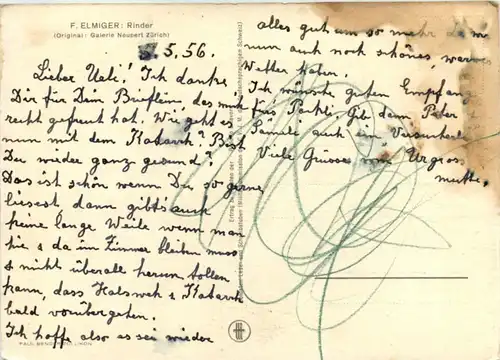 F. ELMIGER: Rinder
(Original: Galerie Neupert Zürich)
5.5.56.
Lieber Ueli! Ich danke
Dir für Dein Brieflein, das mich
recht gefreut hat. Wie geht es
nun mit dem Katarrh? Bist
Du wieder ganz gesund?
Das ist schön wenn Du so gerne
liesest dann gibt's auch
keine lange Weile wenn man
hie & da im Zimmer bleiben muss
& nicht überall herum tollen
kann, dass Halsweh & Katarrh
bald vorübergehen.
Ich hoffe also es sei wieder
alles gut um so mehr da wir
nun auch noch schönes, warmes
Wetter haben.
Ich wünsche guten Empfang
fürs Päckli, gib dem Peter
auch ein
Viele Grüsse von Urgross
mutter.